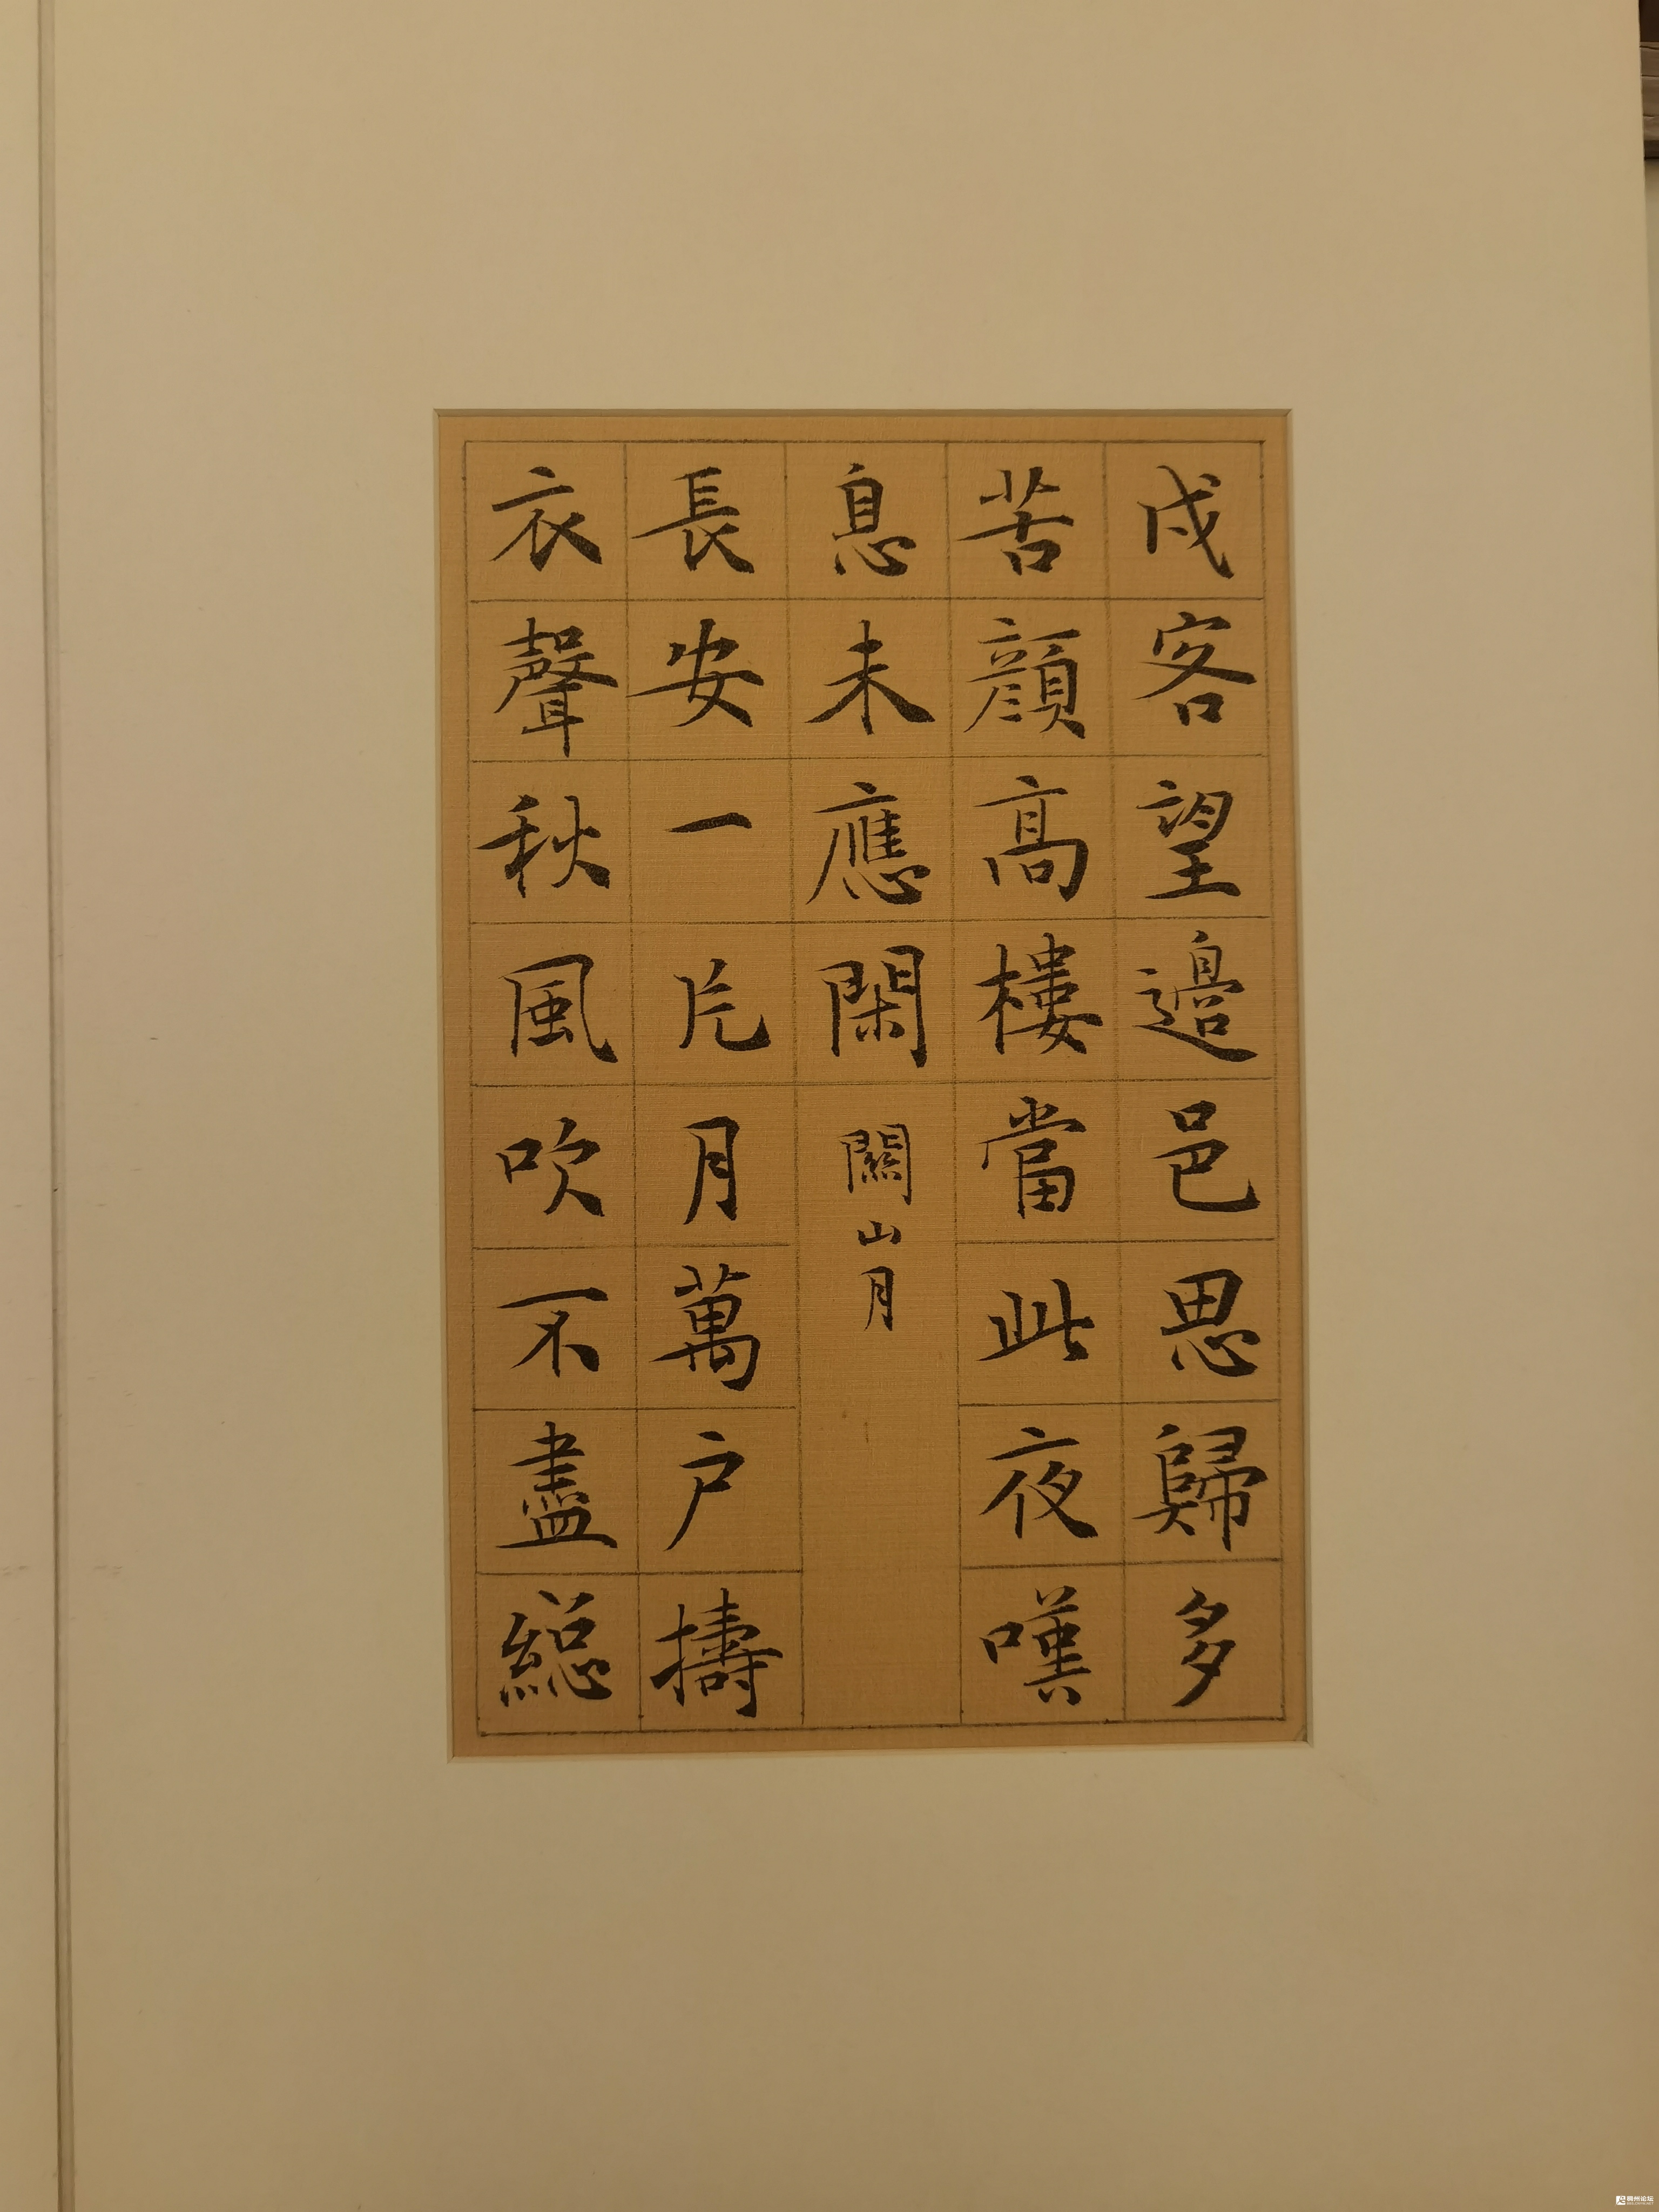 戍客望邊邑思歸多
苦顏高樓當此夜嘆
息未應閑 關山月
長安一片月萬户擣
衣聲秋風吹不盡總